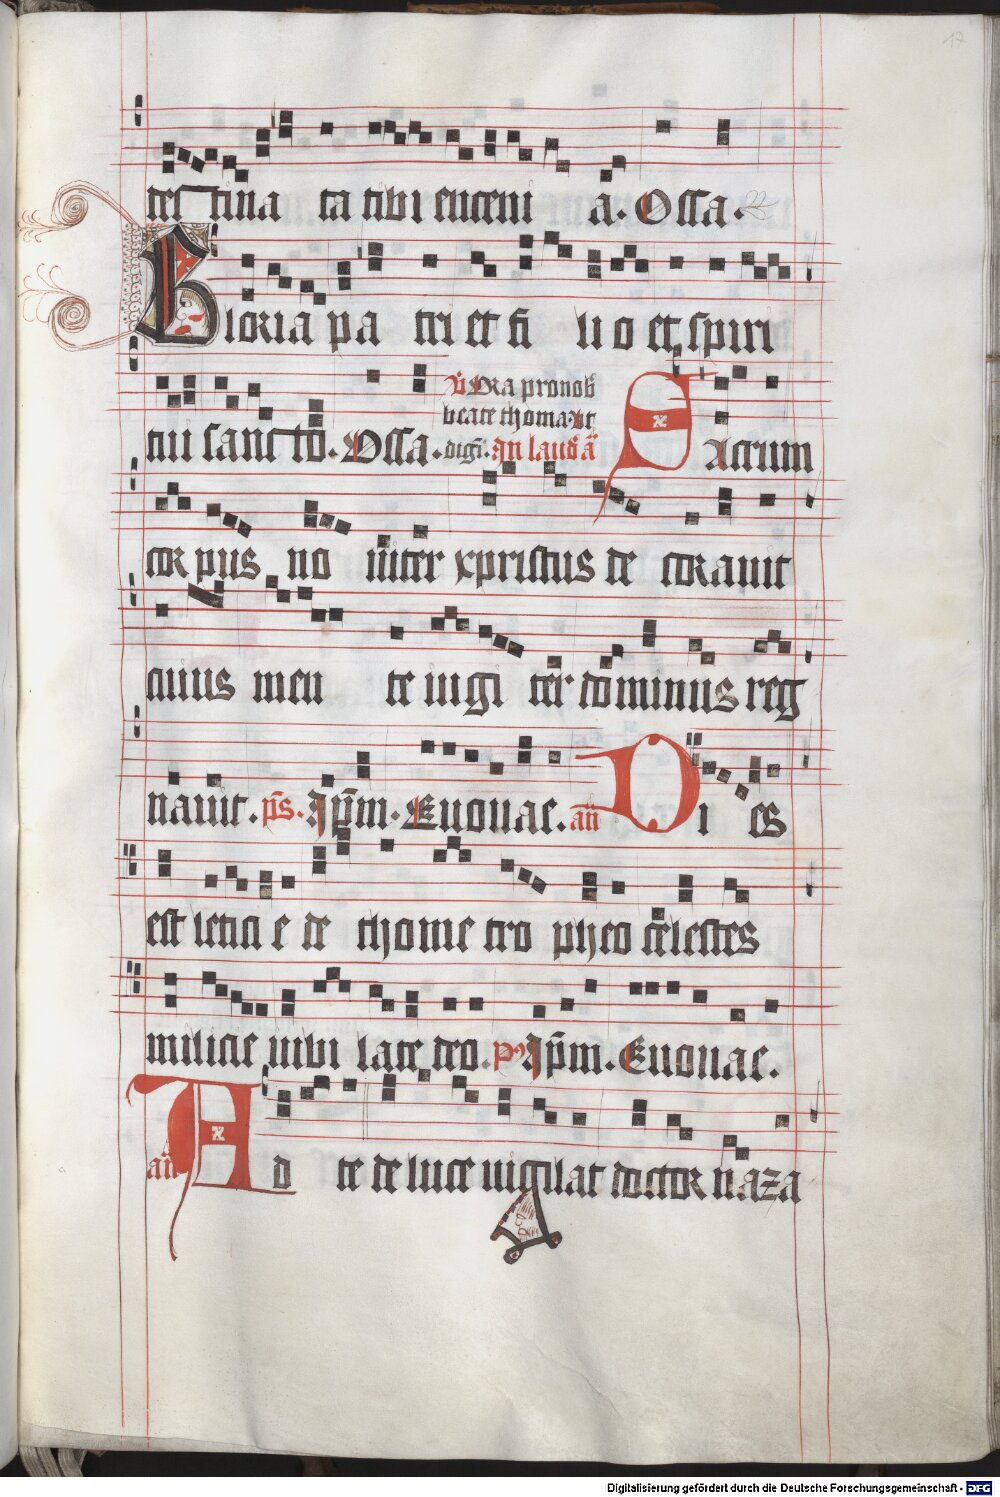 17
tes tina ta tibi euceni a. Ossa. 22
Gloria pa tri et fi li o et spiri
tui sancto. Ossa.
v̄ Ora pro nob
beate thoma. Ut
digi. An laud a
Sacrum
cor pus no niter xpristus de corauit
cuius men te iugi ter dominus reg
nauit. ps. Ipm. Euouae. an Di es
est leticie de thome tro pheo celestes
milicie iubi late deo. ps Ipm. Euouae.
an Ad te de luce uigilat doctor naza
Digitalisierung gefördert durch die Deutsche Forschungsgemeinschaft - DFG